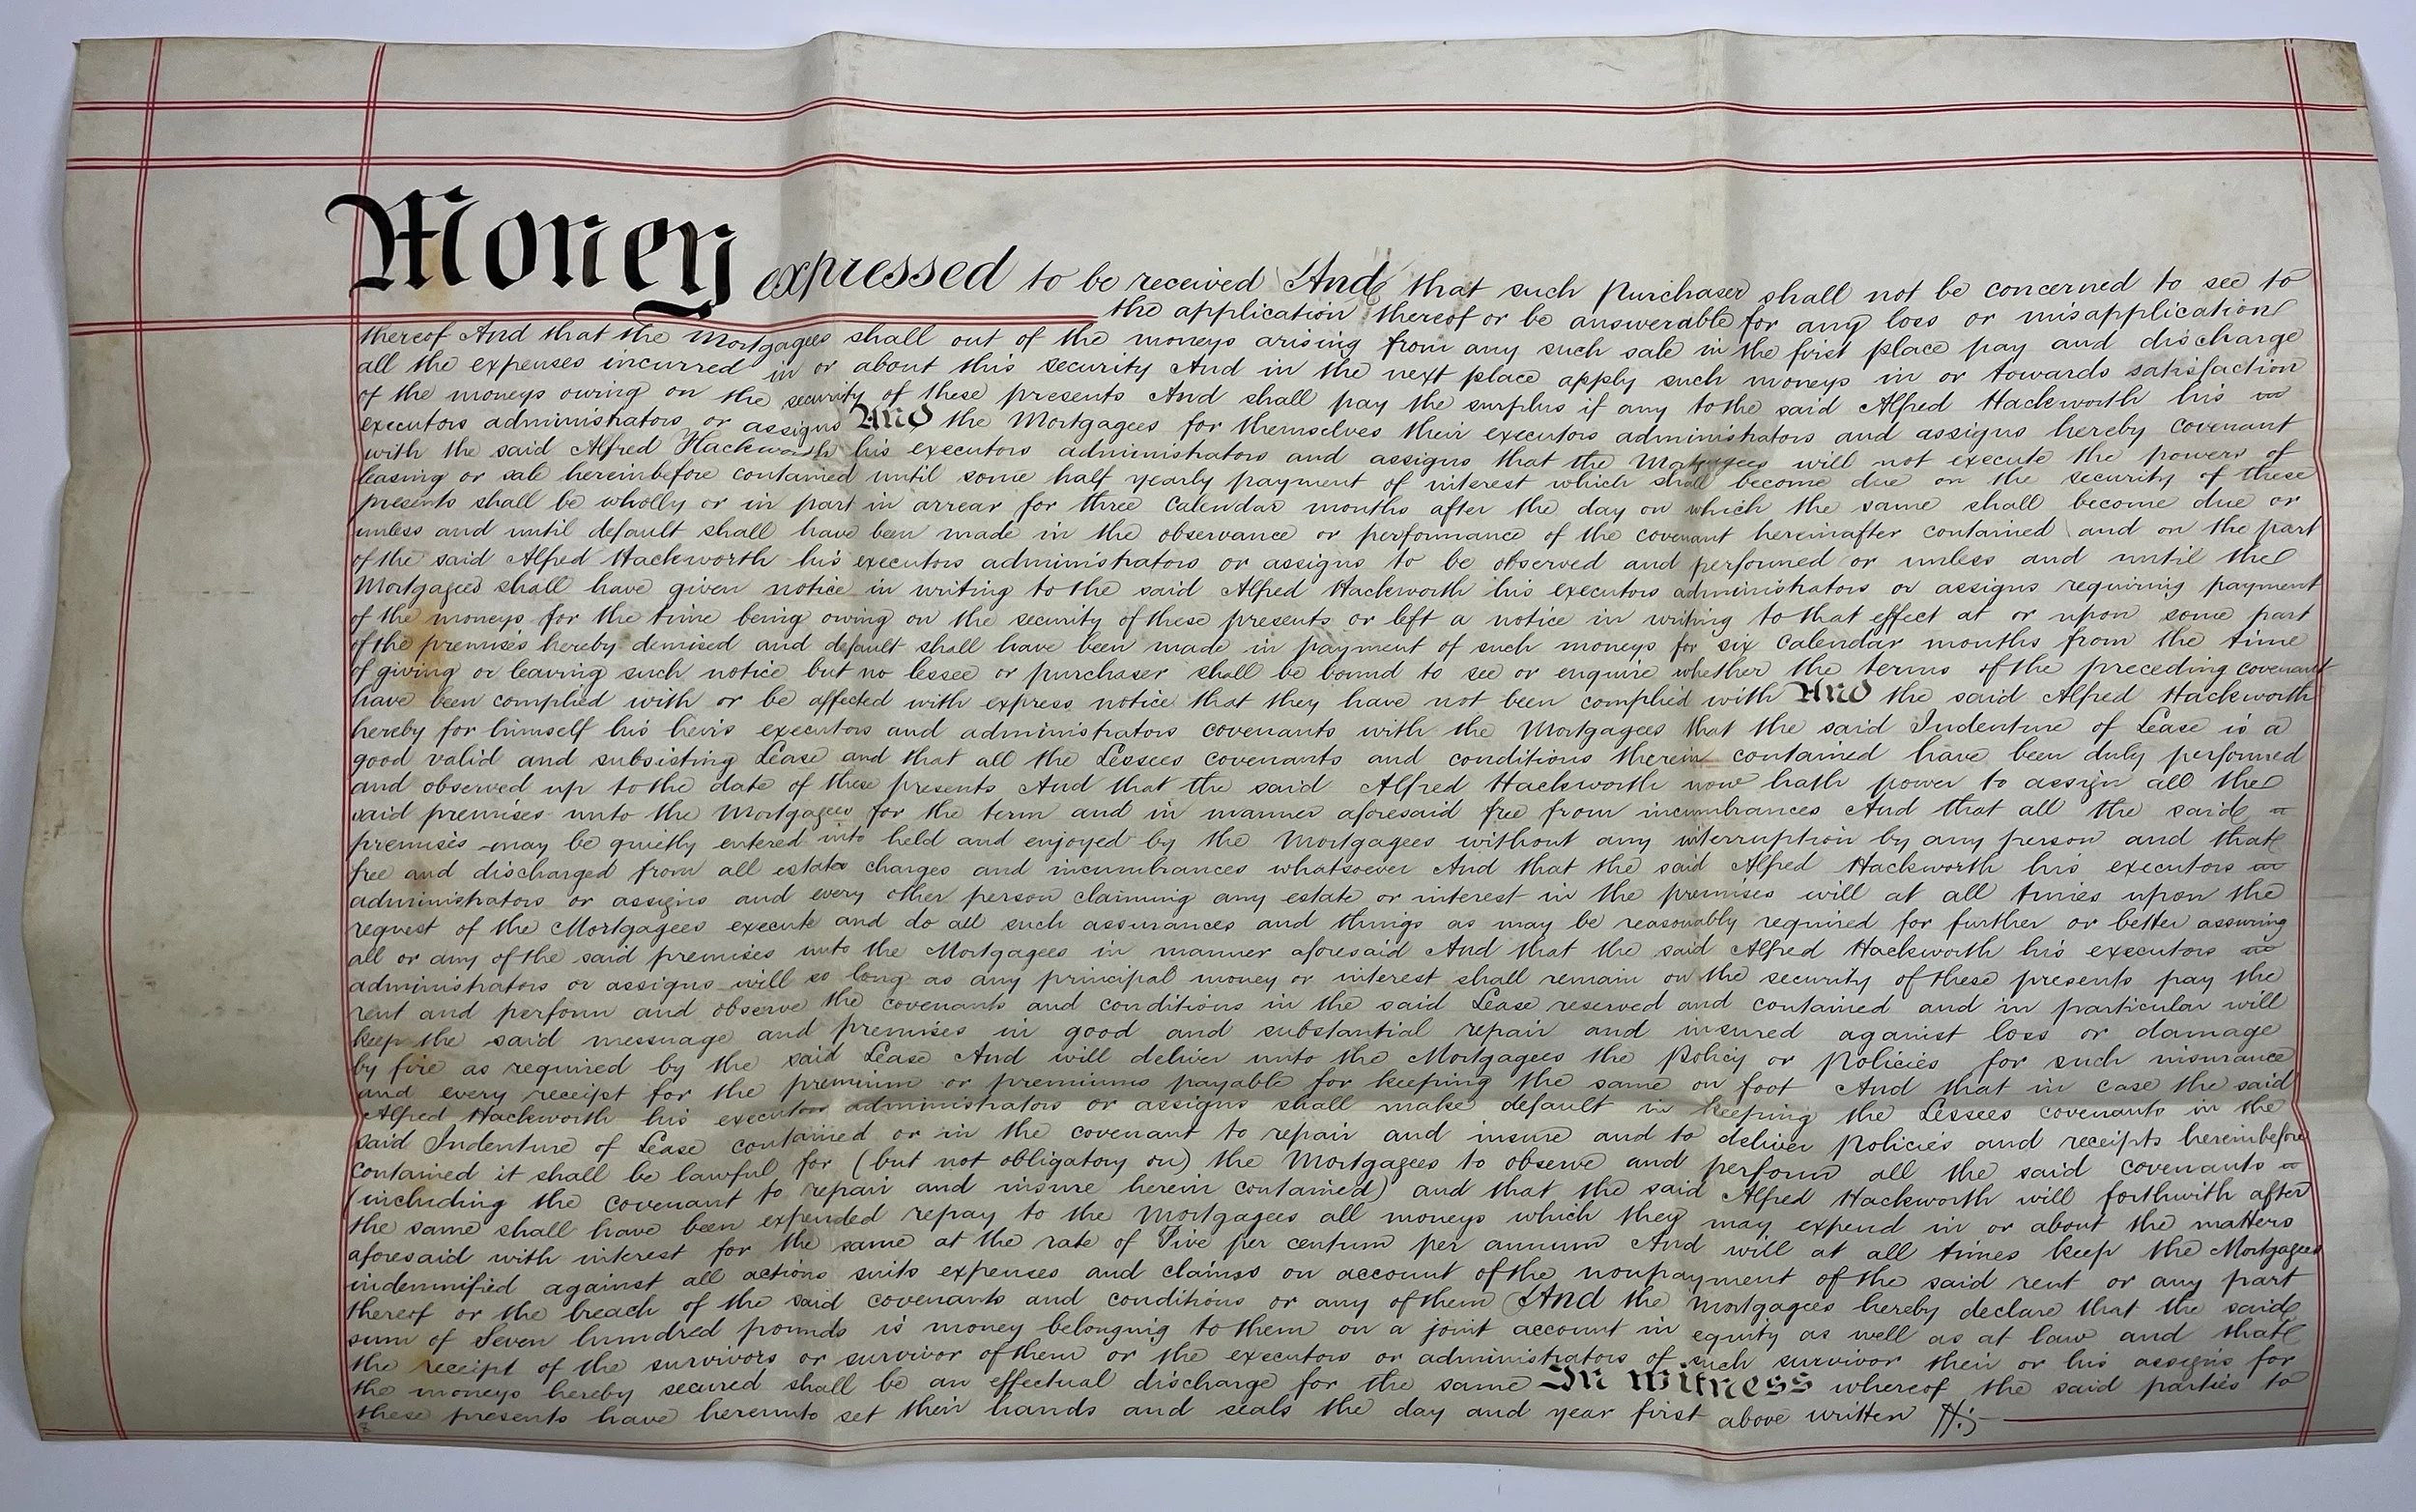 Money expressed to be received And that such purchaser shall not be concerned to see to
the application thereof or be answerable for any loss or misapplication
thereof And that the Mortgagees shall out of the moneys arising from any such sale in the first place pay and discharge
all the expenses incurred in or about this security And in the next place apply such moneys in or towards satisfaction
of the moneys owing on the security of these presents And shall pay the surplus if any to the said Alfred Hackworth his
executors administrators or assigns And the Mortgagees for themselves their executors administrators and assigns hereby covenant
with the said Alfred Hackworth his executors administrators and assigns that the Mortgagees will not execute the powers of
leasing or sale hereinbefore contained until some half yearly payment of interest which shall become due on the security of these
presents shall be wholly or in part in arrear for three Calendar months after the day on which the same shall become due or
unless and until default shall have been made in the observance or performance of the covenant hereinafter contained and on the part
of the said Alfred Hackworth his executors administrators or assigns to be observed and performed or unless and until the
Mortgagees shall have given notice in writing to the said Alfred Hackworth his executors administrators or assigns requiring payment
of the moneys for the time being owing on the security of these presents or left a notice in writing to that effect at or upon some part
of the premises hereby demised and default shall have been made in payment of such moneys for six Calendar months from the time
of giving or leaving such notice but no lessee or purchaser shall be bound to see or enquire whether the terms of the preceding covenant
have been complied with or be affected with express notice that they have not been complied with And the said Alfred Hackworth
hereby for himself his heirs executors and administrators covenants with the Mortgagees that the said Indenture of Lease is a
good valid and subsisting Lease and that all the Lessees covenants and conditions therein contained have been duly performed
and observed up to the date of these presents And that the said Alfred Hackworth now hath power to assign all the
said premises unto the Mortgagees for the term and in manner aforesaid free from incumbrances And that all the said
premises may be quietly entered into held and enjoyed by the Mortgagees without any interruption by any person and that
free and discharged from all estates charges and incumbrances whatsoever And that the said Alfred Hackworth his executors
administrators or assigns and every other person claiming any estate or interest in the premises will at all times upon the
request of the Mortgagees execute and do all such assurances and things as may be reasonably required for further or better assuring
all or any of the said premises unto the Mortgagees in manner aforesaid And that the said Alfred Hackworth his executors
administrators or assigns will so long as any principal money or interest shall remain on the security of these presents pay the
rent and perform and observe the covenants and conditions in the said Lease reserved and contained and in particular will
keep the said messuage and premises in good and substantial repair and insured against loss or damage
by fire as required by the said Lease And will deliver unto the Mortgagees the Policy or Policies for such insurance
and every receipt for the premium or premiums payable for keeping the same on foot And that in case the said
Alfred Hackworth his executors administrators or assigns shall make default in keeping the Lessees covenants in the
said Indenture of Lease contained or in the covenant to repair and insure and to deliver Policies and receipts hereinbefore
contained it shall be lawful for (but not obligatory on) the Mortgagees to observe and perform all the said covenants
(including the covenant to repair and insure herein contained) and that the said Alfred Hackworth will forthwith after
the same shall have been expended repay to the Mortgagees all moneys which they may expend in or about the matters
aforesaid with interest for the same at the rate of Five per centum per annum And will at all times keep the Mortgagees
indemnified against all actions suits expenses and claims on account of the nonpayment of the said rent or any part
thereof or the breach of the said covenants and conditions or any of them And the Mortgagees hereby declare that the said
sum of Seven hundred pounds is money belonging to them on a joint account in equity as well as at law and that
the receipt of the survivors or survivor of them or the executors or administrators of such survivor their or his assigns for
the moneys hereby secured shall be an effectual discharge for the same In Witness whereof the said parties to
these presents have hereunto set their hands and seals the day and year first above written